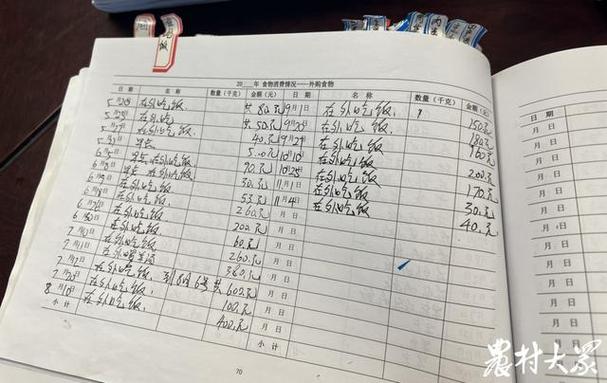 20 年 食物消费情况——外购食物
日期 名称 数量(千克) 金额(元) 日期 名称 数量(千克) 金额(元)
5月20日 在外吃饭. 共80元 9月1日 在外吃饭. 150元
5月25日 在外吃饭. 共50元 9月20日 在外吃饭. 180元
5月27日 在外吃饭. 40元 9月29日 在外吃饭 160元
5月30日 早点 5.00元 10月10日 在外吃饭 200元
6月5日 在外吃饭 90元 10月25日 在外吃饭 170元
6月9日 在外吃饭 50元 11月1日 在外吃饭 30元
6月18日 在外吃饭 53元 11月4日 在外吃饭 40元
6月26日 在外吃饭 260元 月 日
6月30日 在外吃饭 200元 月 日
7月1日 在外吃饭 60元 月 日
7月11日 在外喝 260元 月 日
7月17日 在外吃饭 360元 月 日
7月20日 在外吃饭, 到8月6号共 600元 月 日
8月10日 在外吃饭, 100元 月 日
小计 在外吃饭, 400元 小计
70
月 日
月 日
月 日
月 日
月 日
月 日
月 日
月 日
月 日
月 日
月 日
月 日
農村大眾